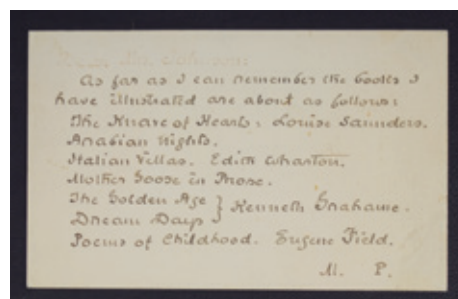 As far as I can remember the books I
have illustrated are about as follows:
The Knave of Hearts, Louise Saunders.
Arabian Nights.
Italian Villas. Edith Wharton.
Mother Goose in Prose.
The Golden Age } Kenneth Grahame.
Dream Days
Poems of Childhood. Eugene Field.
M. P.